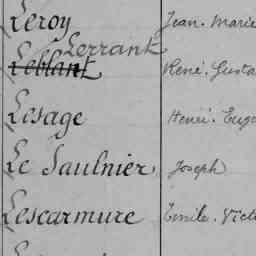 Leroy Jean. Marie
Lerrant
Leblant René. Gusta
Lesage Henri. Eug
Le Saulnier Joseph
Lescarmure Emile. Vict